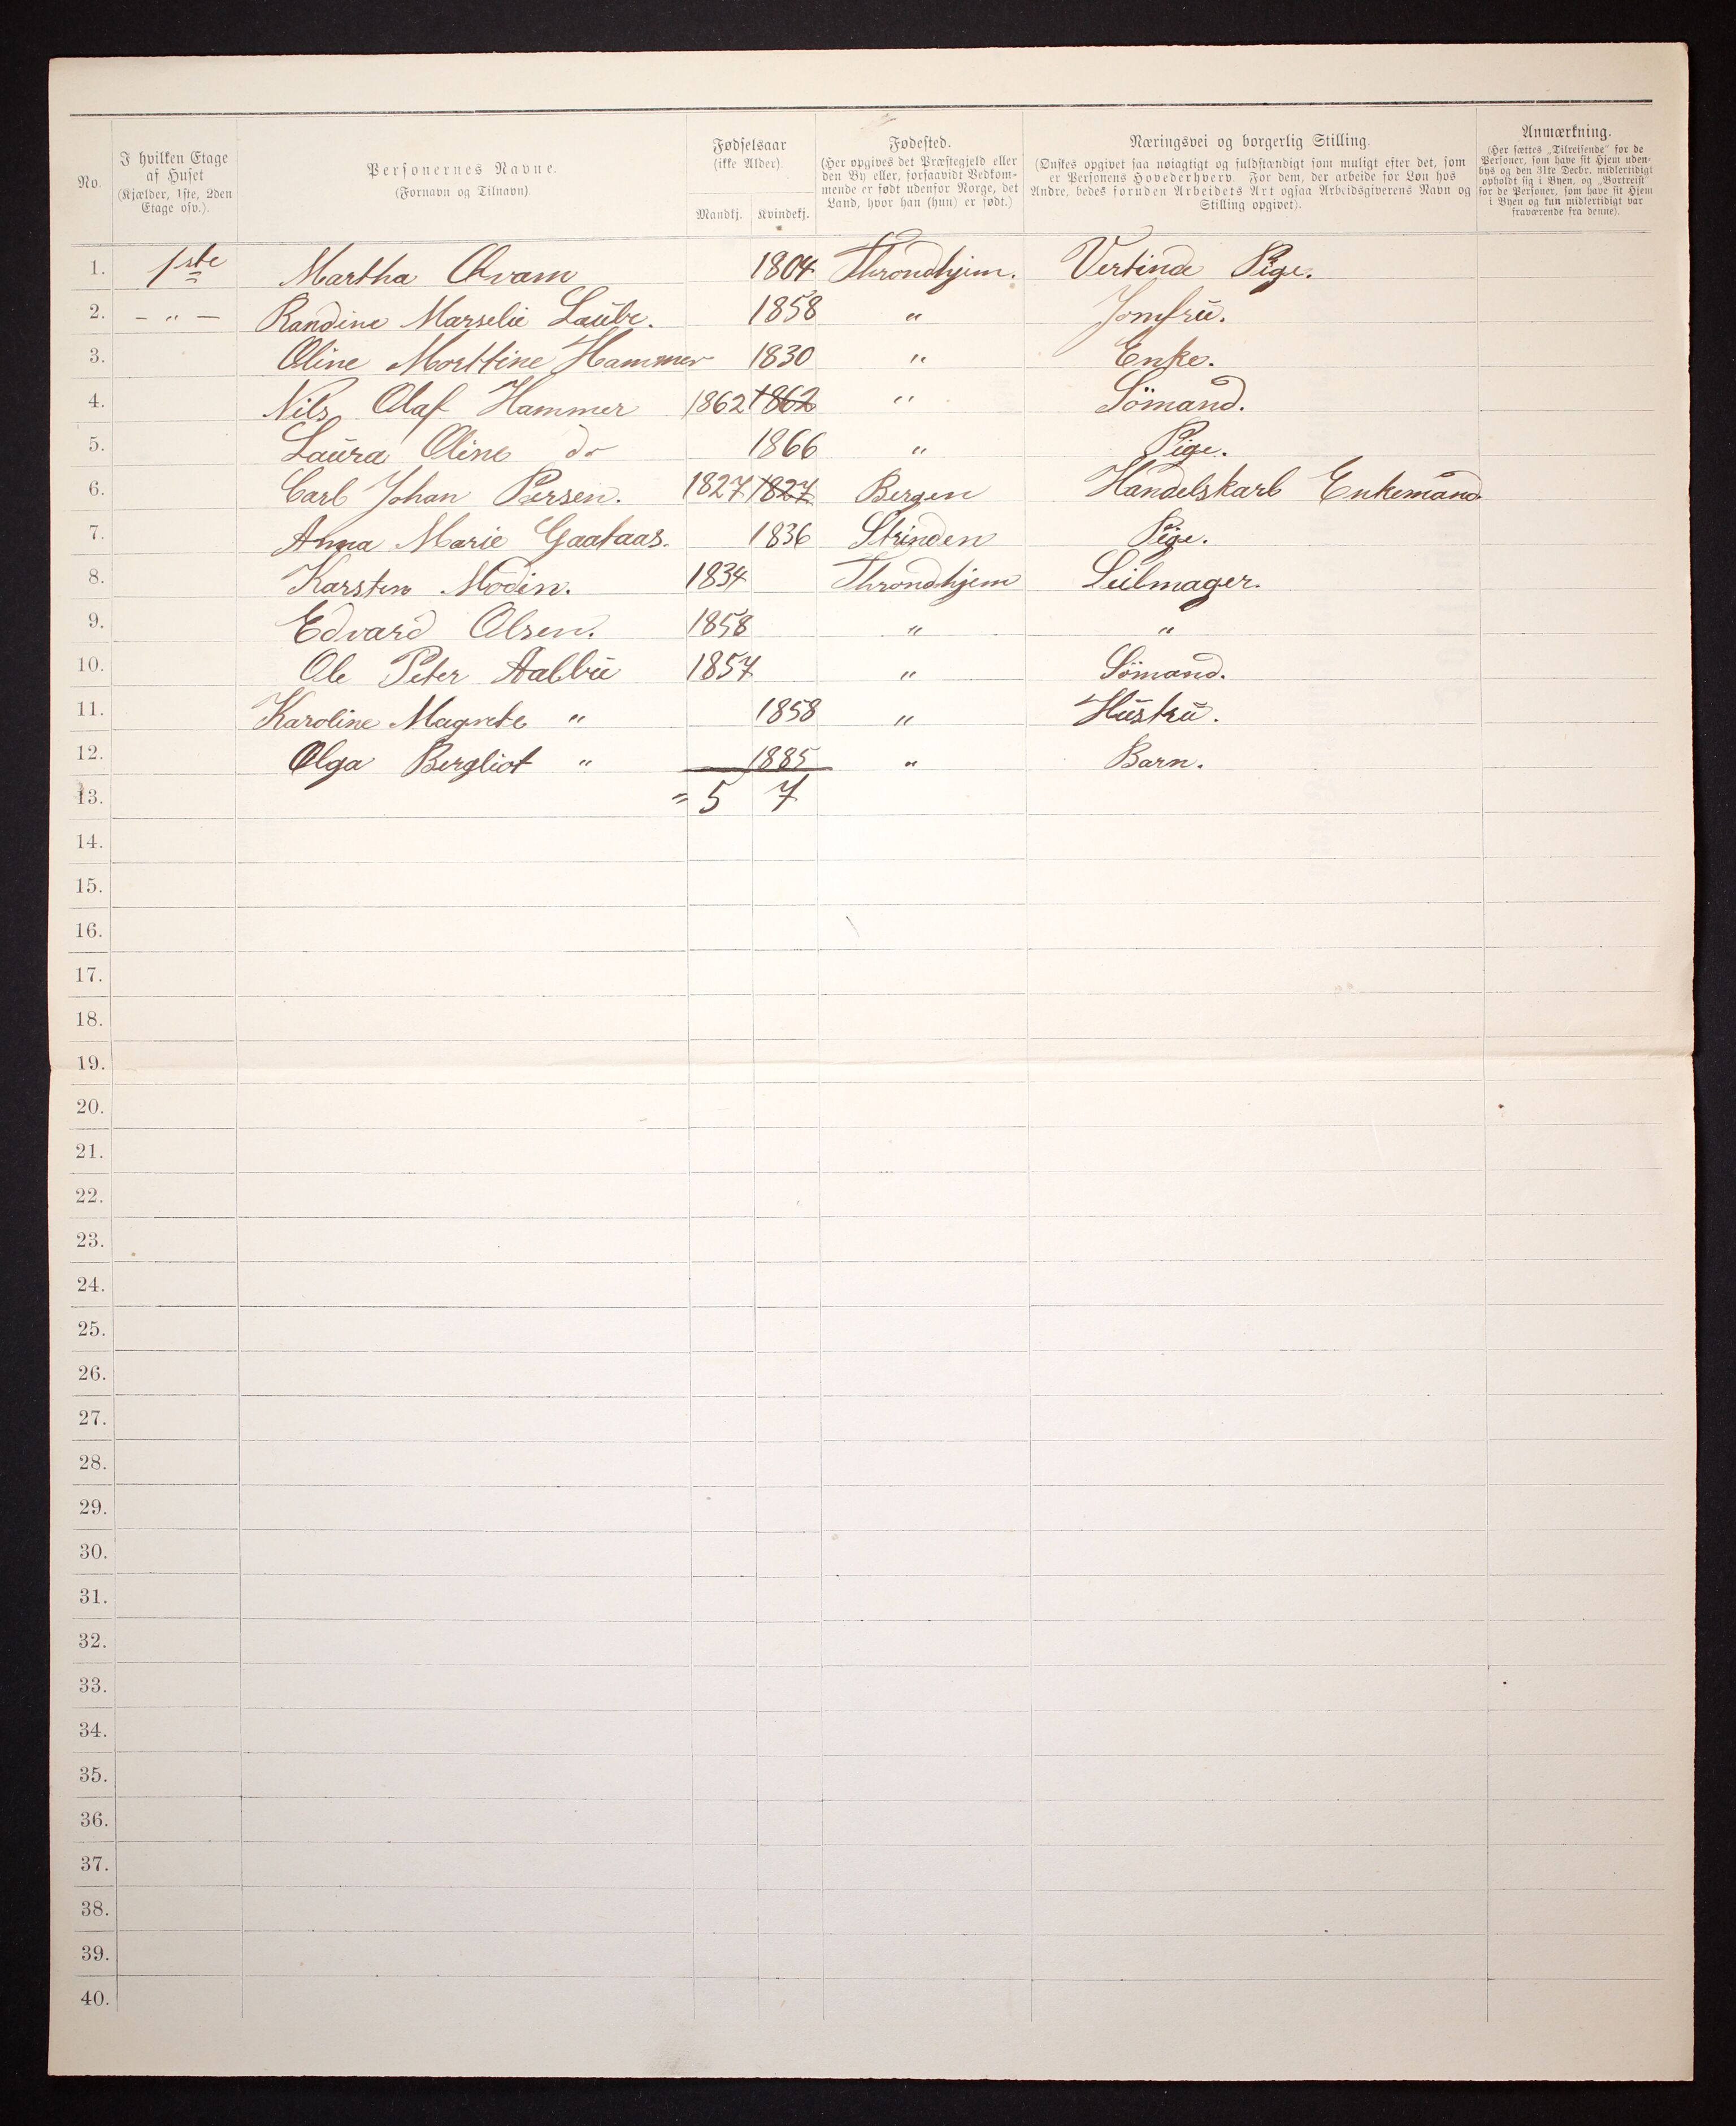 No.
I hvilken Etage
af Huset
(Kjælder, 1ste, 2den
Etage osv.).
Personernes Navne.
(Fornavn og Tilnavn).
Fødselsaar
(ikke Alder).
Mandkj. Kvindekj.
Fødested.
(Her opgives det Præstegjeld eller
den By eller, forsaavidt Vedkom-
mende er født udenfor Norge, det
Land, hvor han (hun) er født.)
Næringsvei og borgerlig Stilling.
(Ønskes opgivet saa nøiagtigt og fuldstændigt som muligt efter det, som
er Personens Hovederhverv. For dem, der arbeide for Løn hos
Andre, bedes foruden Arbeidets Art ogsaa Arbeidsgiverens Navn og
Stilling opgivet).
Anmærkning.
(Her sættes „Tilreisende" for de
Personer, som have sit Hjem uden-
bys og den 31te Decbr. midlertidigt
opholdt sig i Byen, og „Bortreist"
for de Personer, som have sit Hjem
i Byen og kun midlertidigt var
fraværende fra denne).
1. 1ste Martha Qvam 1804 Throndhjem. Vertinde Pige.
2. — " — Randine Marselie Laube. 1858 " Jomfru.
3. Oline Morttine Hammer 1830 " Enke.
4. Nils Olaf Hammer 1862 1862 " Sömand.
5. Laura Oline do 1866 " Pige.
6. Carl Johan Persen. 1827 1827 Bergen Handelskarl Enkemand
7. Anna Marie Gaataas. 1836 Strinden Pige.
8. Karsten Modin. 1834 Throndhjem Seilmager.
9. Edvard Olsen. 1858 " "
10. Ole Peter Aalbu 1857 " Sömand.
11. Karoline Magrete " 1858 " Hustru.
12. Olga Bergliot " 1885 " Barn.
13. = 5 7
14.
15.
16.
17.
18.
19.
20.
21.
22.
23.
24.
25.
26.
27.
28.
29.
30.
31.
32.
33.
34.
35.
36.
37.
38.
39.
40.